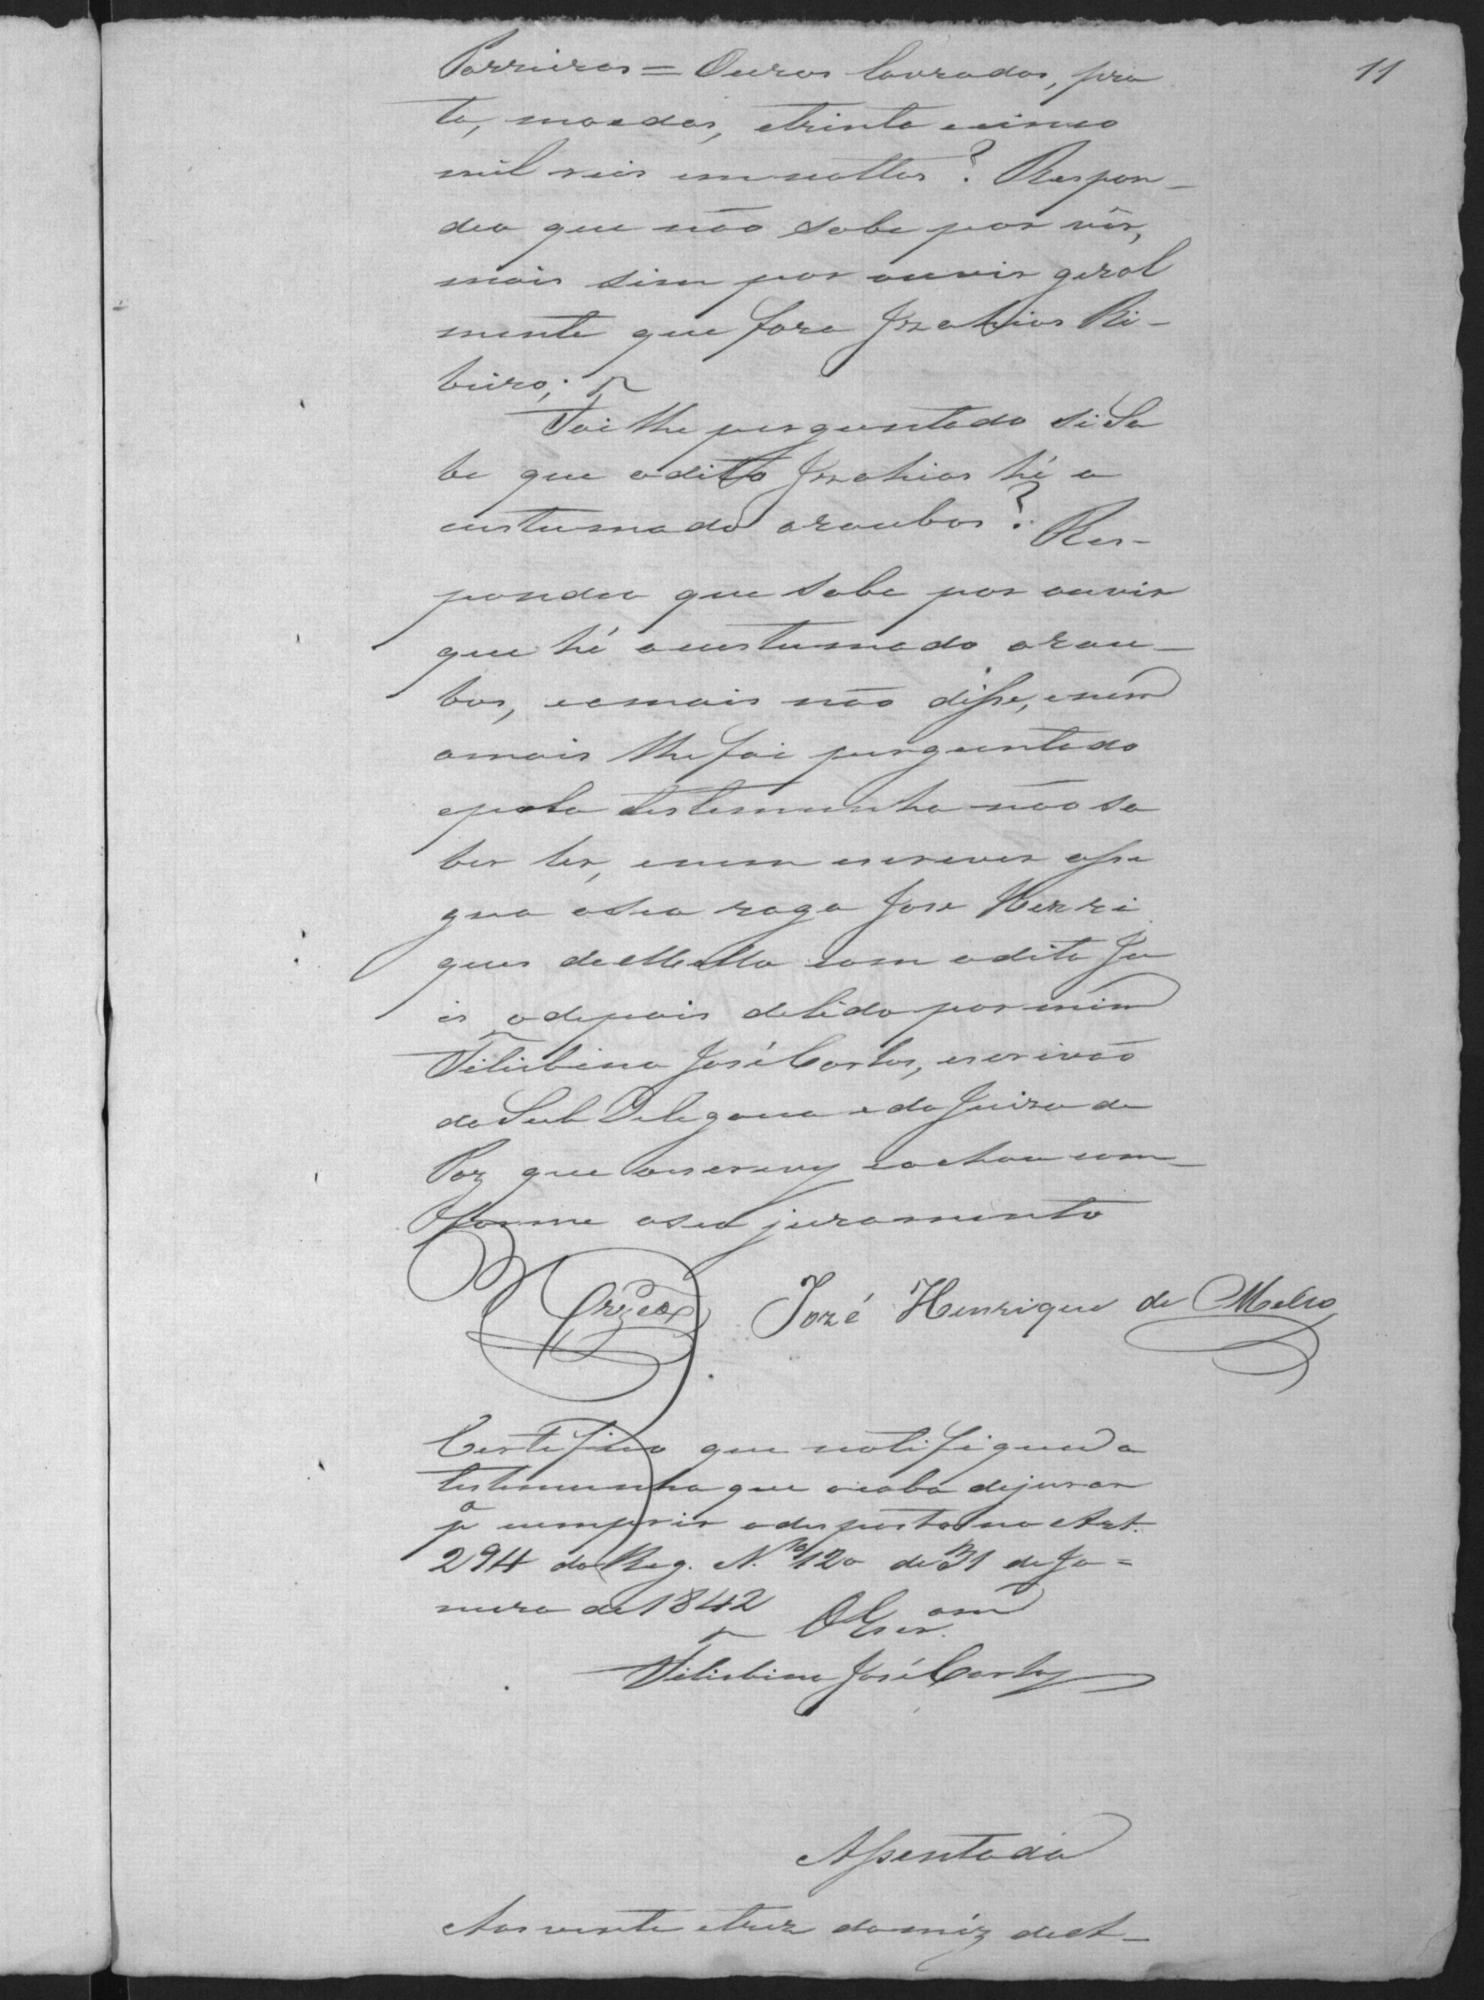 11
Parreiras = Ouros lavrados, pra
ta, moedas, etrinta ecinco
mil reis em nottas? Respon-
deo que não sabe por vêr,
mais sim por ouvir geral
mente que fora Izahias Ri-
beiro;
Foi lhe perguntado si Sa
be que odito Izahias hé a
custumado aroubos? Res-
pondeo que sabe por ouvir
que hé acustumado arou-
bos, eamais não disse, enem
amais lhe foi perguntado
epela testemunha não sa
ber ler, enem escrever assi
gna aseu rogo Jose Henri
ques deMello com odito Ju
is, odepois delido por mim
Felisbino José Cortes, escrivão
da Sub Delegacia e do Juizo de
Paz que oescrevy eachou com-
forme oseo juramento
José Henrique de Mello
Certifico que notifiquei a
testemunha que acaba dejurar
pª cumprir odisposto no Art.
294 do Reg. N.º 120 de 31 de Ja=
neiro de 1842
O Escr.am
Felisbino José Cortes
Assentada
Aos vinte etrez domêz deA-